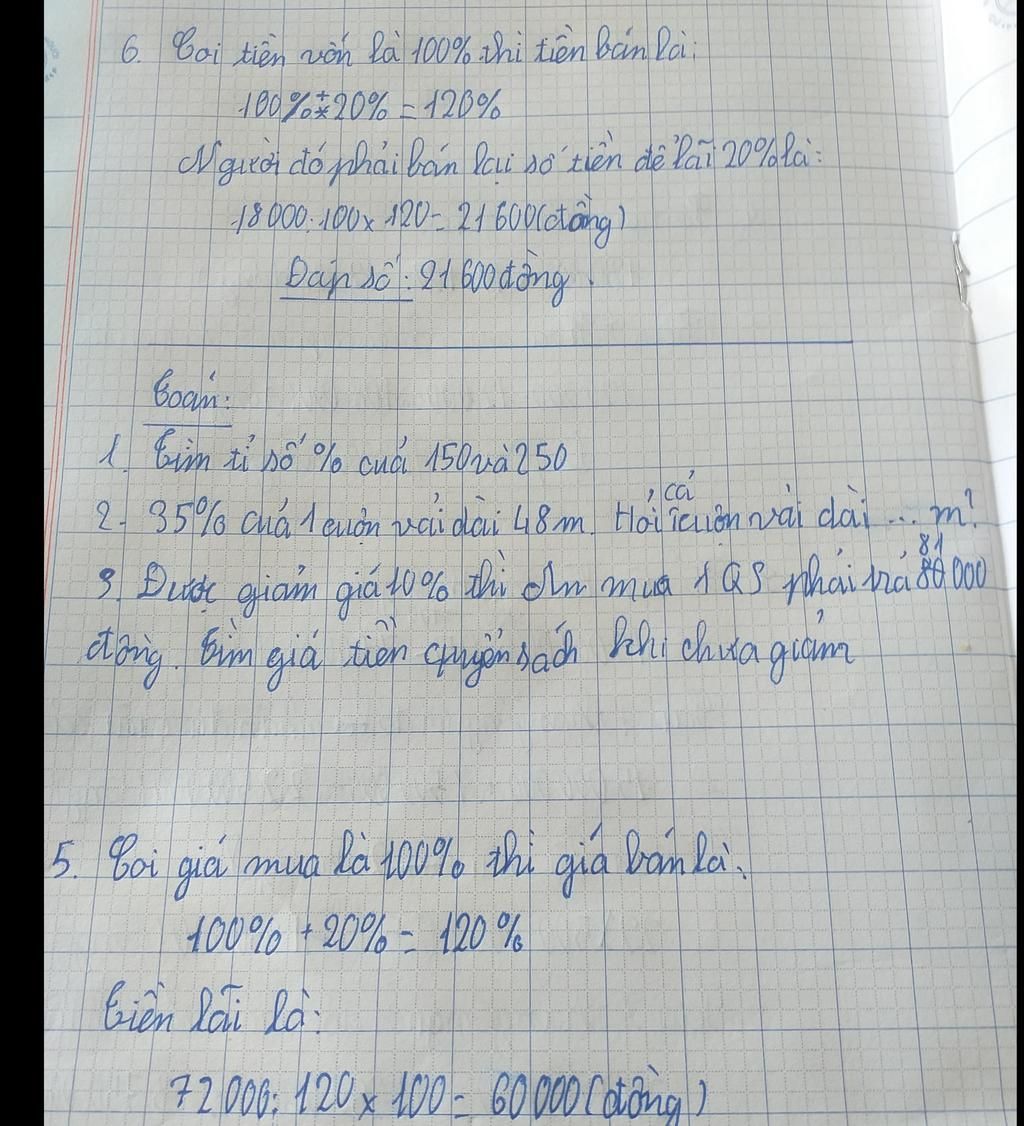 6. Coi tiền vốn là 100% thì tiền bán là:
100% + 20% = 120%
Người đó phải bán lại số tiền để lãi 20% là:
18000 : 100 x 120 = 21 600 (đồng)
Đáp số: 21 600 đồng.
Toán:
1. Tìm tỉ số % của 150 và 250
2. 35% của 1 cuộn vải dài 48m. Hỏi cả cuộn vải dài ... m?
3. Được giảm giá 10% thì mua 1 QS phải trả 81 000
đồng. Tìm giá tiền quyển sách khi chưa giảm
5. Coi giá mua là 100% thì giá bán là:
100% + 20% = 120%
Tiền lãi là:
72 000 : 120 x 100 = 60 000 (đồng)